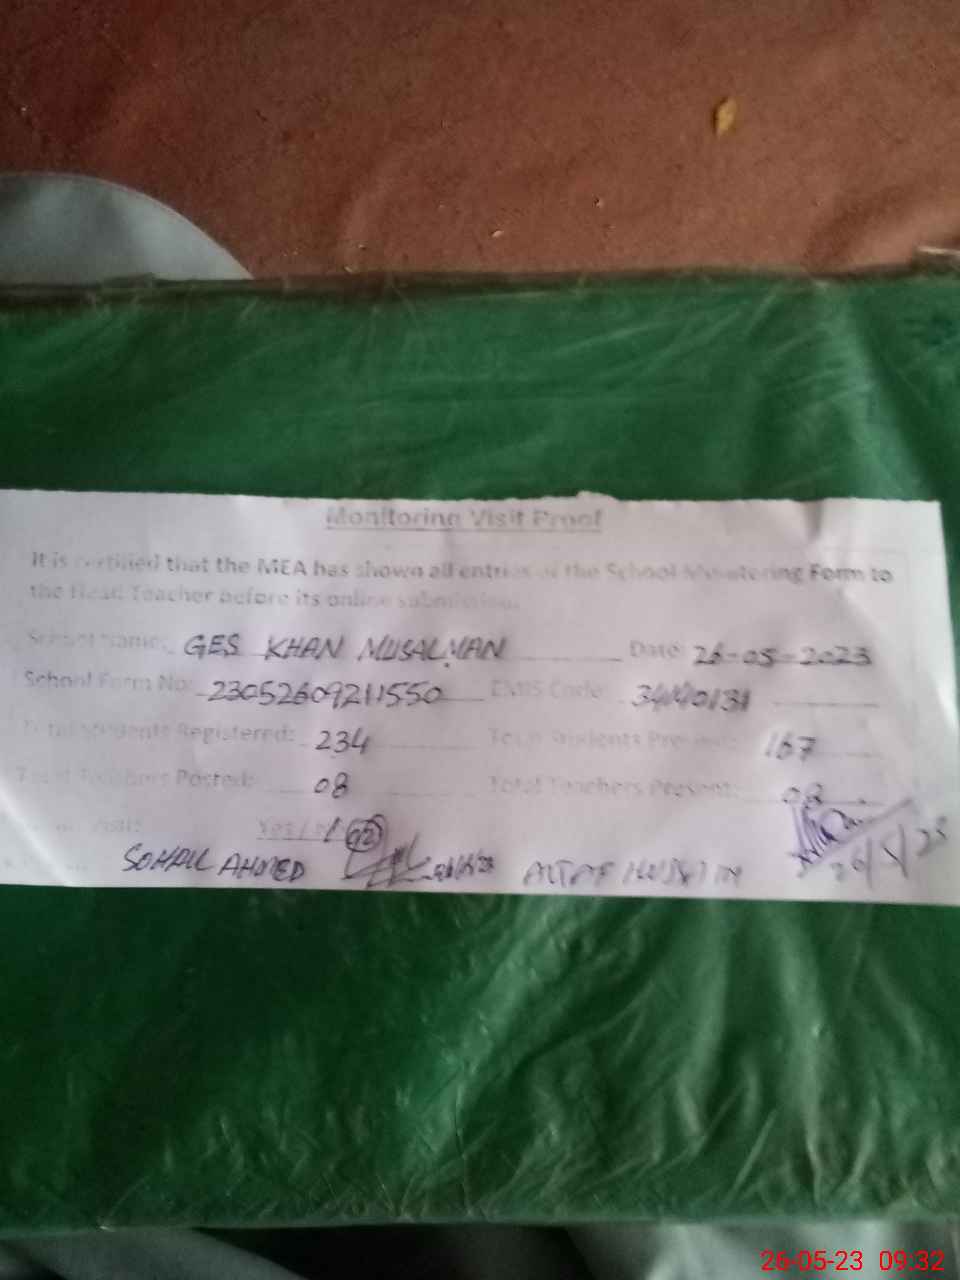 Monitoring Visit Proof
It is certified that the MEA has shown all entries of the School Monitoring Form to
the Head Teacher before its online submission.
School Name: GES KHAN MUSALMAN Date: 26-05-2023
School Form No: 23052609211550 EMIS Code: 34140131
Total Students Registered: 234 Total Students Present: 167
Total Teachers Posted: 08 Total Teachers Present: 08
Visit: Yes /
SOHAIL AHMED ALTAF HUSSAIN 26/5/23
26-05-23 09:32